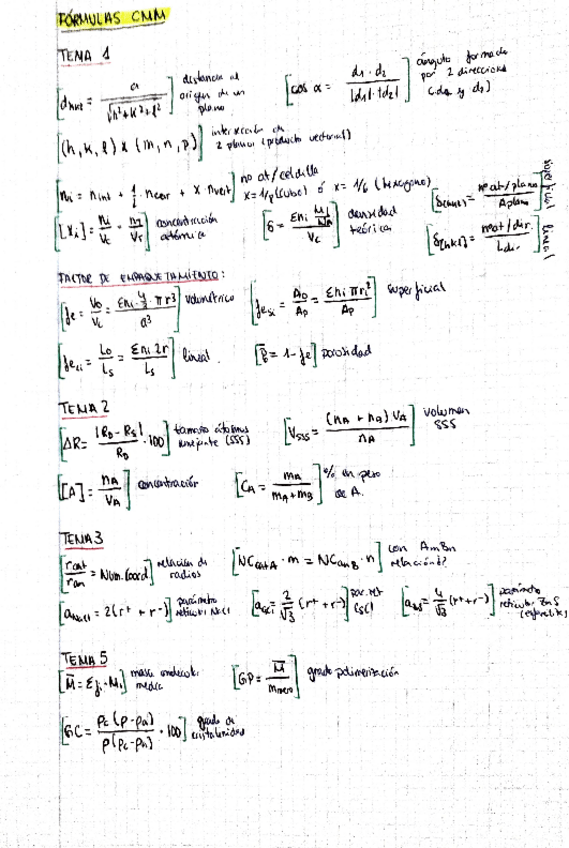 FÓRMULAS CMM
TEMA 1
[d_hkl = a / √(h² + k² + l²)] distancia al origen de un plano
[cos α = d₁ · d₂ / |d₁| · |d₂|] ángulo formado por 2 direcciones (d₁ y d₂)
[(h, k, l) x (m, n, p)] intersección de 2 planos (producto vectorial)
[nᵢ = n int + 1/2 · n car + x · n vert] no at/celdilla x = 1/8 (cubo) ó x = 1/6 (hexágono)
[δ(hkl) = nº at/plano / A plano] superficial
[[Xᵢ] = nᵢ/Vc = nT/VT] concentración atómica
[δ = Σnᵢ M/NA / Vc] densidad teórica
[δ[hkl] = nº at/dir. / L dir] lineal
FACTOR DE EMPAQUETAMIENTO:
[fe = Vo/Vc = Σnᵢ 4/3 π r³ / a³] volumétrico
[fe si = Ao/Ap = Σnᵢ π rᵢ² / Ap] superficial
[fe Li = Lo/Ls = Σnᵢ 2r / Ls] lineal
[P = 1 - fe] porosidad
TEMA 2
[ΔR = |RD - RS| / RD · 100] tamaño átomos semejante (SSS)
[V sss = (nA + nB) VA / nA] volumen SSS
[[A] = nA / VA] concentración
[CA = mA / mA + mB] % en peso de A.
TEMA 3
[r cat / r an = Num. Coord] relación de radios
[NC catA · m = NC anB · n] con AmBn
[a NaCl = 2(r⁺ + r⁻)] parámetro reticular NaCl
[a CsCl = 2/√3 (r⁺ + r⁻)] par. ret CsCl
[a ZnS = 4/√3 (r⁺ + r⁻)] parámetro reticular ZnS (esfalerita)
TEMA 5
[M̄ = Σfᵢ · Mᵢ] masa molecular media
[GP = M̄ / m mero] grado polimerización
[GC = ρc (ρ - ρa) / ρ (ρc - ρa) · 100] grado de cristalinidad